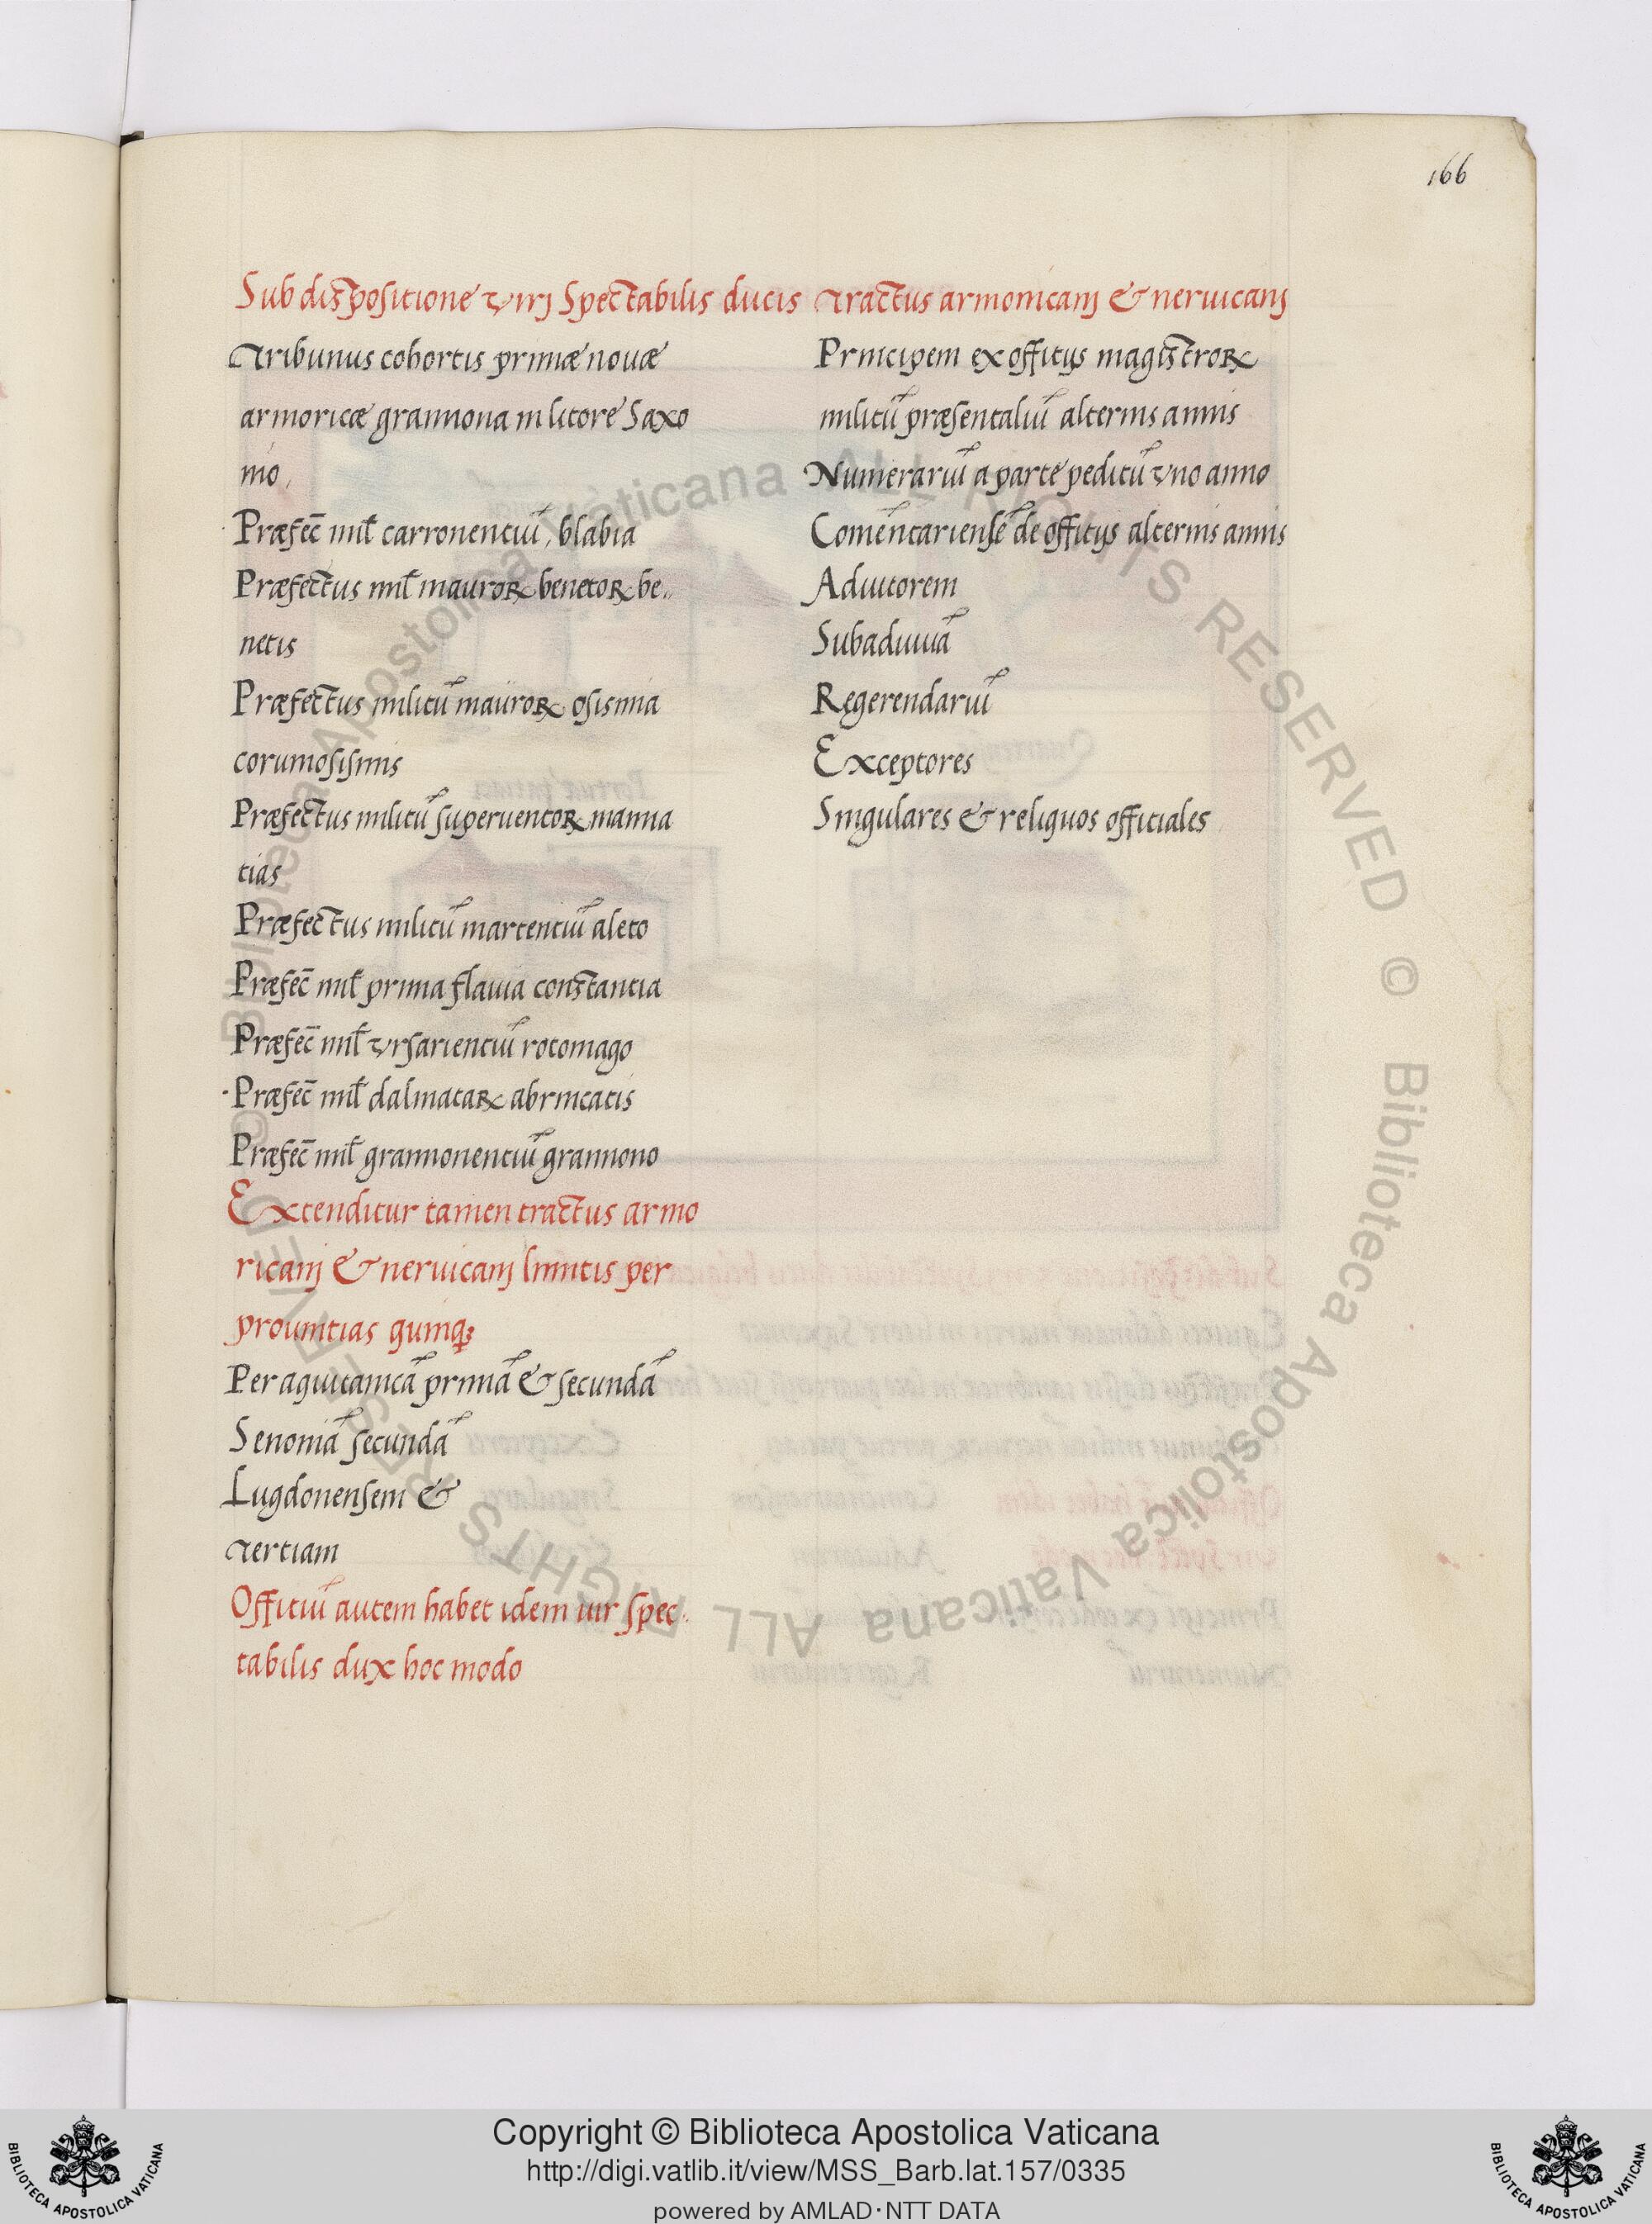 166
Sub dispositione viri Spectabilis ducis tractus armonicani & neruicani
Tribunus cohortis primæ nouæ
armoricæ grannona in litore Saxo
nio.
Præfec̄ mil̄ carronentiū, blabia
Præfectus mil̄ mauroꝝ benetoꝝ be..
netis
Præfectus militū mauroꝝ osismia
corumosismis
Præfectus militū superuentoꝝ manna
tias
Præfectus militū martentiū aleto
Præfec̄ mil̄ prima flauia constantia
Præfec̄ mil̄ vrsarientiū rotomago
Præfec̄ mil̄ dalmataꝝ abrincatis
Præfec̄ mil̄ grannonentiū grannono
Extenditur tamen tractus armo
ricani & neruicani limitis per
prouintias quinqꝫ
Per aquitanicā primā & secundā
Senoniā secundā
Lugdonensem &
tertiam
Offitiū autem habet idem uir spec..
tabilis dux hoc modo
Principem ex offitijs magistroꝝ
militū præsentaliū alternis annis
Numerariū a parte peditū vno anno
Comēntariensē de offitijs alternis annis
Adiutorem
Subadiuuā
Regerendariū
Exceptores
Singulares & reliquos offitiales
© Biblioteca Apostolica Vaticana ALL RIGHTS RESERVED © Biblioteca Apostolica Vaticana ALL RIGHTS RESERVED
BIBLIOTECA APOSTOLICA VATICANA
Copyright © Biblioteca Apostolica Vaticana
http://digi.vatlib.it/view/MSS_Barb.lat.157/0335
powered by AMLAD·NTT DATA
BIBLIOTECA APOSTOLICA VATICANA